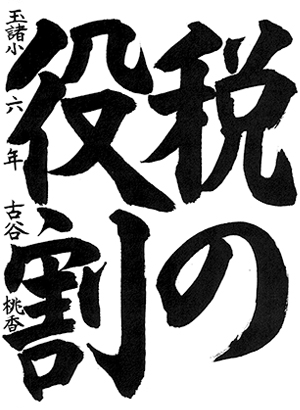 税の
役割
玉諸小 六年 古谷桃香